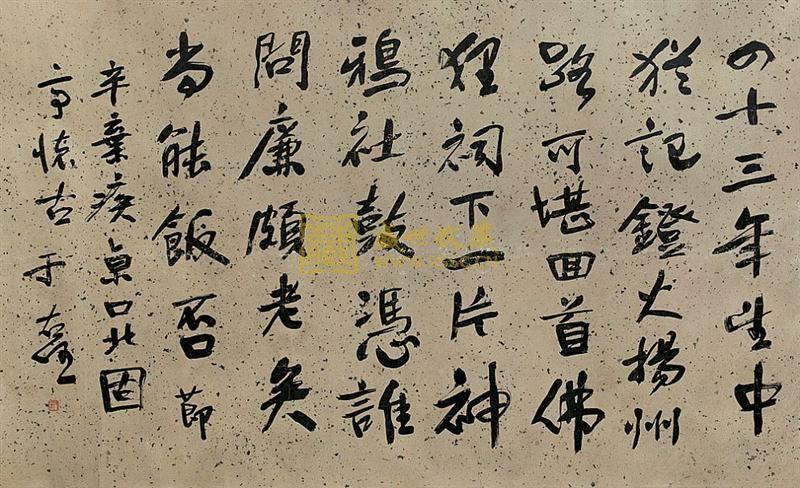 四十三年望中
猶記鐙火揚州
路可堪回首佛
狸祠下一片神
鴉社鼓憑誰
問廉頗老矣
尚能飯否 節
辛棄疾京口北固
亭懷古 于
盛世收藏